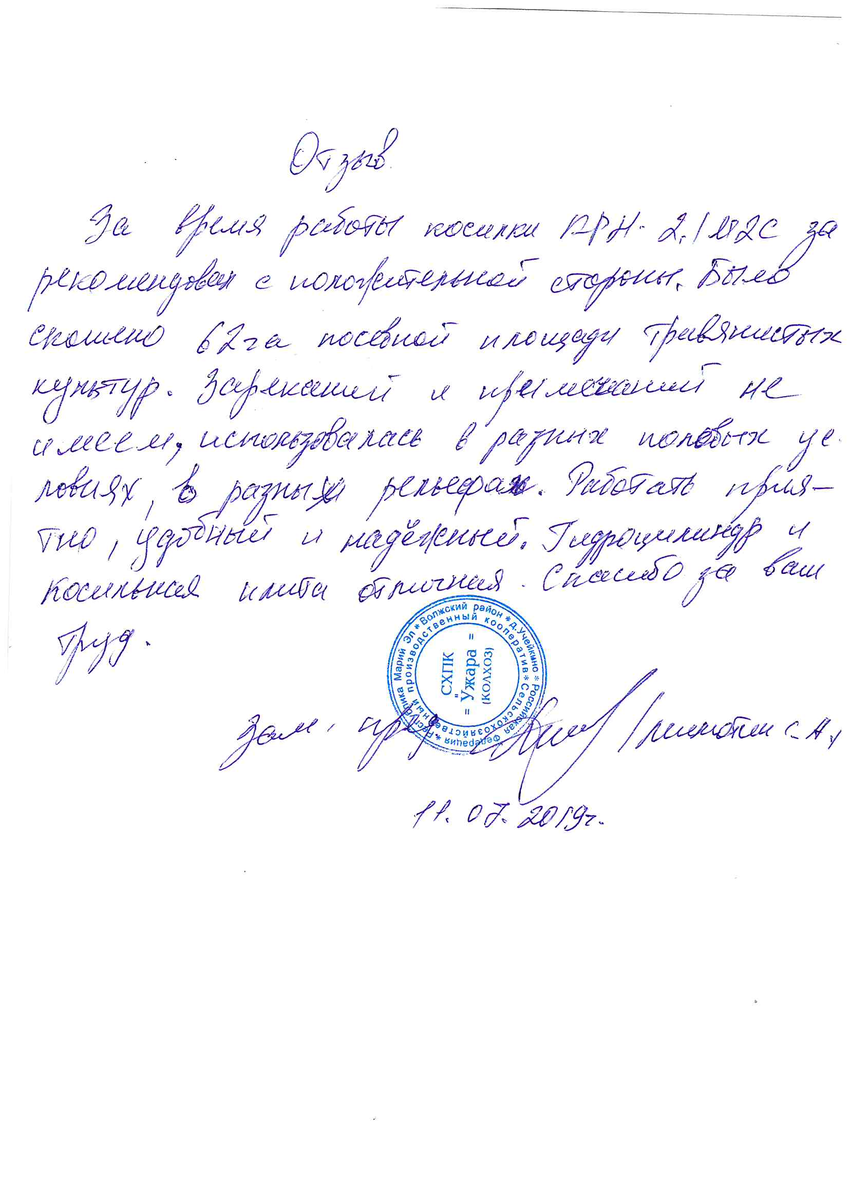 Отзыв.
За время работы косилки КРН-2,1М2С за
рекомендовал с положительной стороны. Было
скошено 62га посевной площади травянистых
культур. Зареканий и примечаний не
имеем, использовалась в разных половых ус
ловиях, в разных рельефах. Работать прия-
тно, удобный и надёжный. Гидроцилиндр и
косильная плита отличная. Спасибо за ваш
труд.
Российская Федерация * Республика Марий Эл * Волжский район * д. Учейкино *
Сельскохозяйственный производственный кооператив *
СХПК
"Ужара"
(КОЛХОЗ)
Зам. пред. С.А.
11.07.2019г.